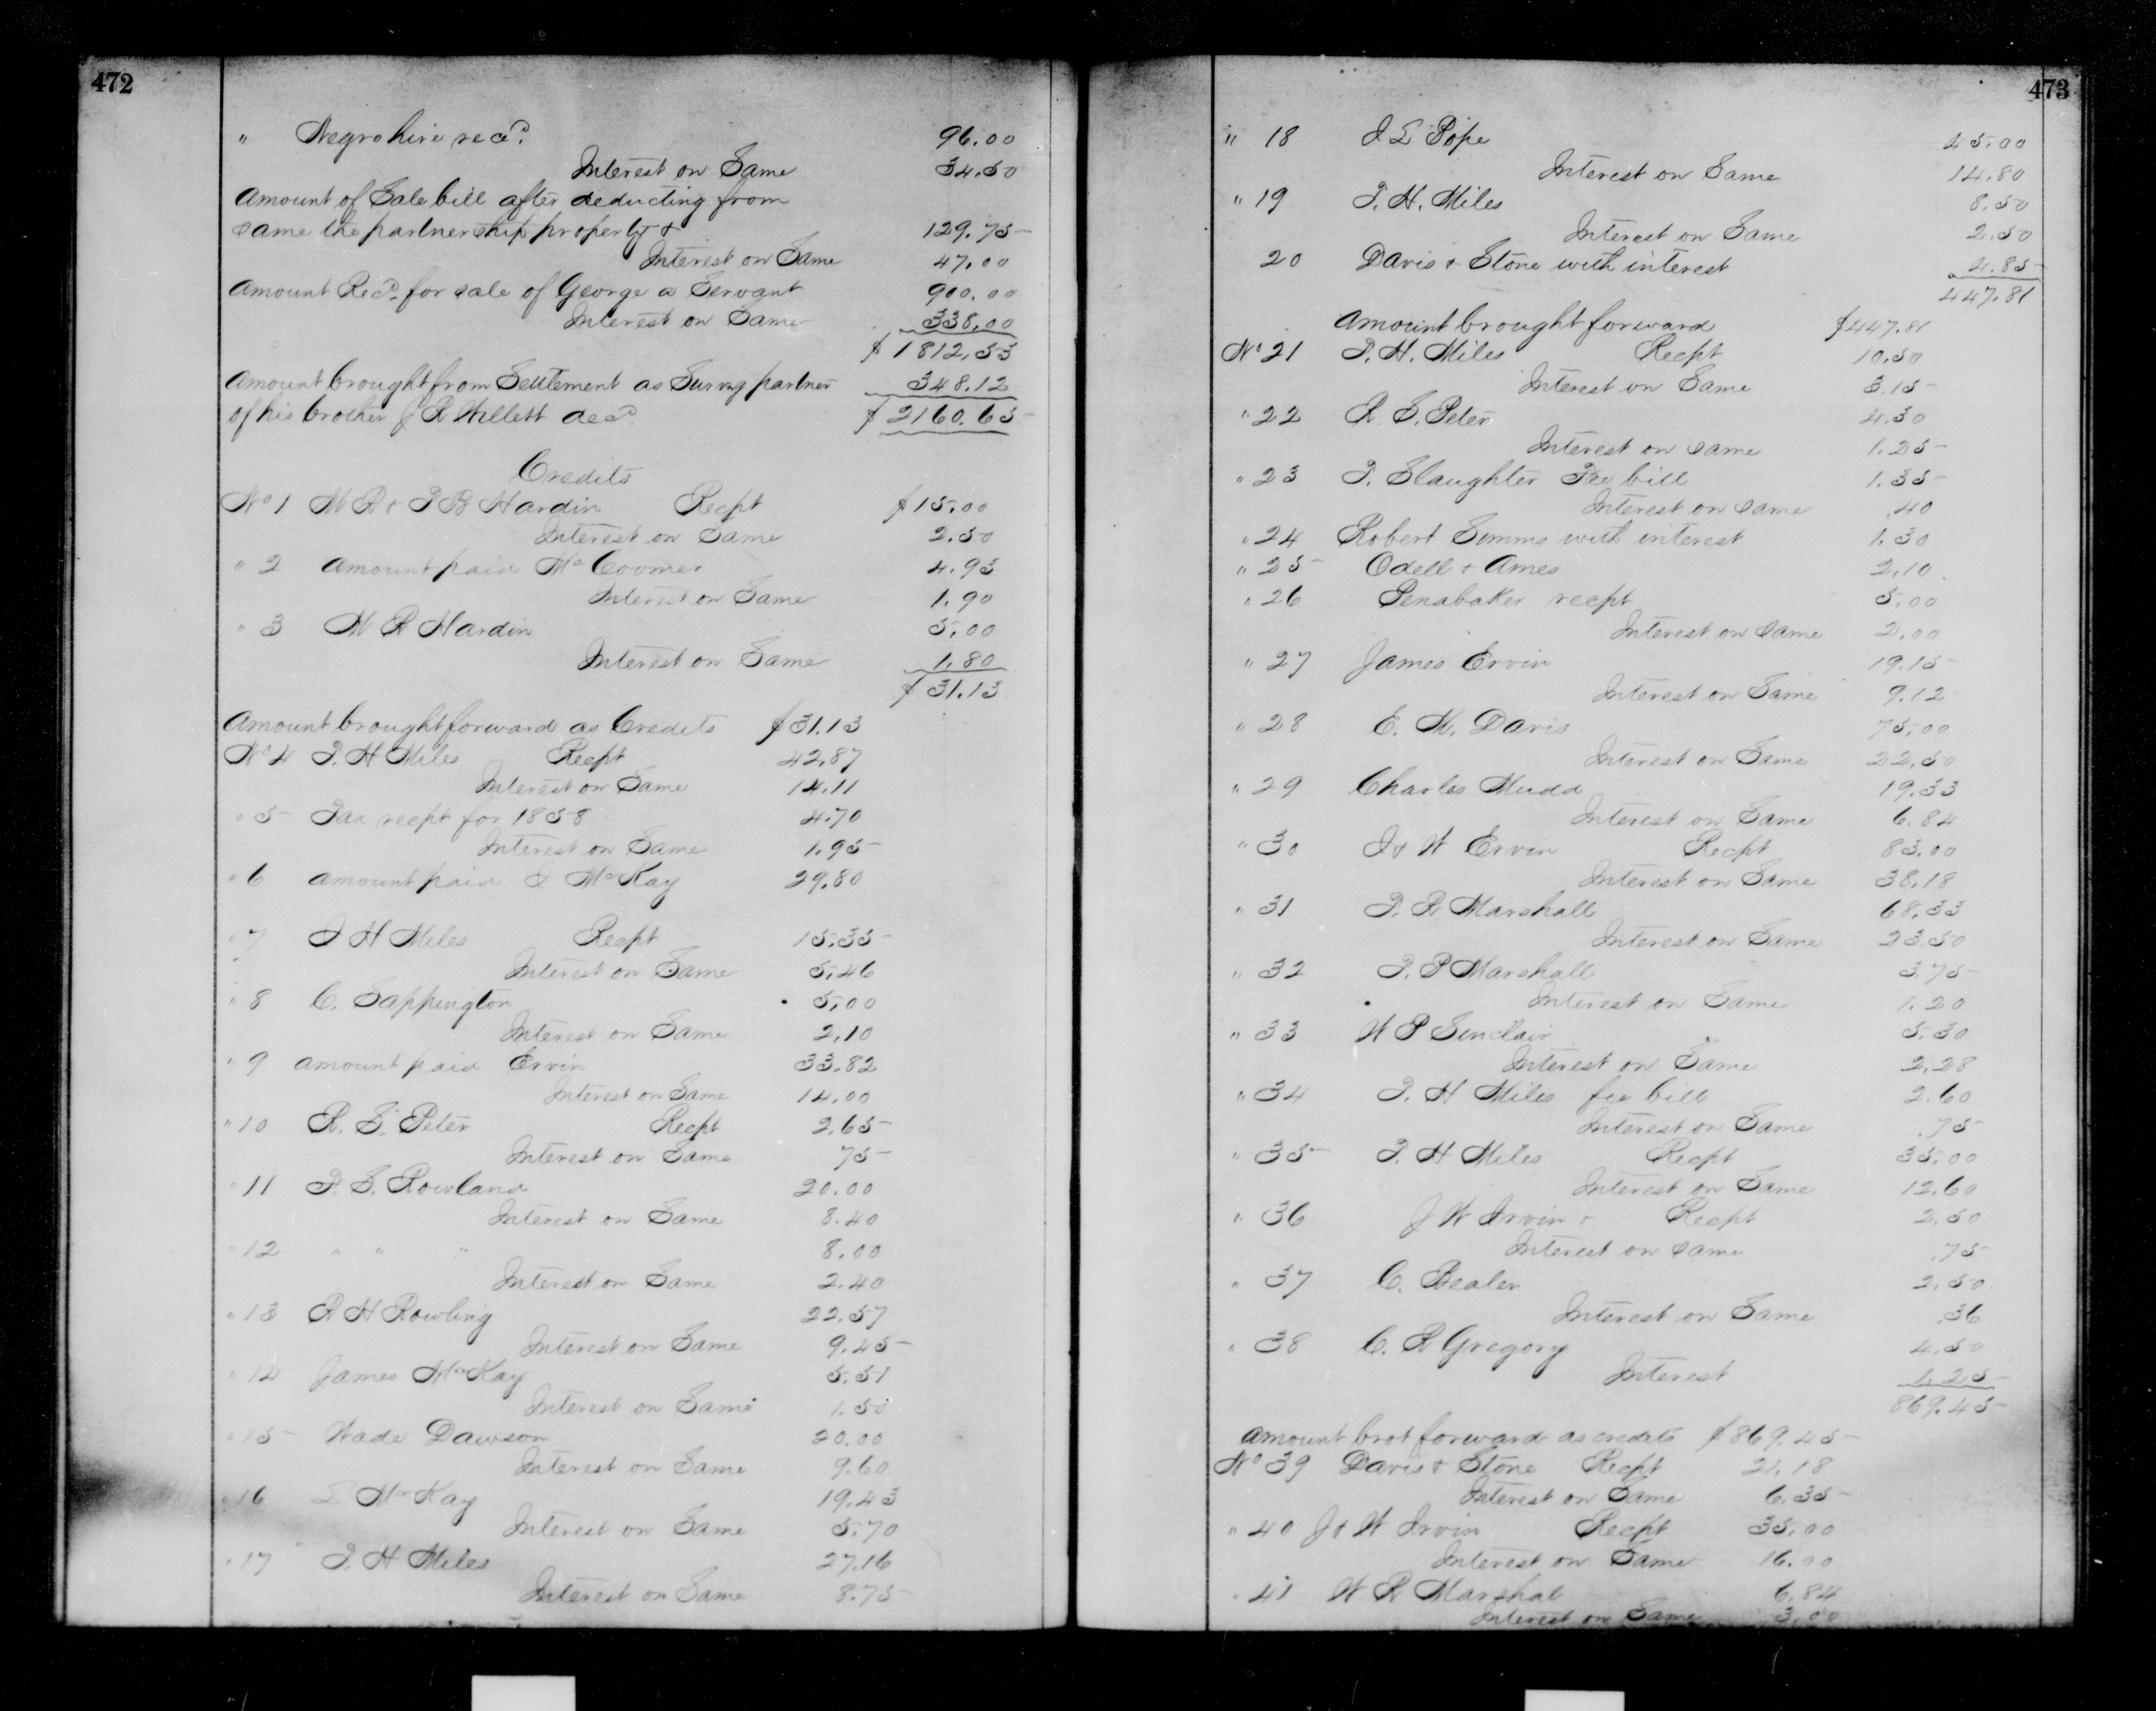 472
" Negro hire recd. 96.00
Interest on Same 34.50
Amount of Sale bill after deducting from
same the partnership property & 129.75
Interest on Same 47.00
Amount Recd. for sale of George a Servant 900.00
Interest on Same 338.00
$1812.53
Amount brought from Settlement as Survg partner 348.12
of his brother J R Willett decd. $2160.65
Credits
No 1 M R & P B Hardin Recpt $15.00
Interest on Same 2.50
" 2 Amount paid Mc Coomer 4.93
Interest on Same 1.90
" 3 M R Hardin 5.00
Interest on Same 1.80
$31.13
Amount brought forward as Credits $31.13
No 4 T. H Miles Recpt 42.87
Interest on Same 14.11
" 5 Tax recpt for 1858 4.70
Interest on Same 1.95
" 6 Amount paid McKay 29.80
" 7 T H Miles Recpt 15.35
Interest on Same 5.46
" 8 C. Sappington 5.00
Interest on Same 2.10
" 9 Amount paid Ervin 33.82
Interest on Same 14.00
" 10 R. S. Peter Recpt 2.65
Interest on Same 75
" 11 P. S. Rowland 20.00
Interest on Same 8.40
" 12 " " " 8.00
Interest on Same 2.40
" 13 R H Rowling 22.57
Interest on Same 9.45
" 14 James McKay 5.51
Interest on Same 1.50
" 15 Wade Dawson 20.00
Interest on Same 9.60
" 16 McKay 19.43
Interest on Same 5.70
" 17 T. H Miles 27.16
Interest on Same 8.75
473
" 18 Pope 45.00
Interest on Same 14.80
" 19 T. H. Miles 8.50
Interest on Same 2.50
20 Davis & Stone with interest 4.85
447.81
Amount brought forward $447.81
No 21 T. H. Miles Recpt 10.50
Interest on Same 3.15
" 22 R. S. Peter 4.30
Interest on same 1.25
" 23 T. Slaughter Fee bill 1.35
Interest on same .40
" 24 Robert Simms with interest 1.30
" 25 Odell & Ames 2.10
" 26 Penabaker recpt 5.00
Interest on same 2.00
" 27 James Ervin 19.15
Interest on Same 9.12
" 28 E. M. Davis 75.00
Interest on Same 22.50
" 29 Charles Mudd 19.33
Interest on Same 6.84
" 30 J & W Ervin Recpt 83.00
Interest on Same 38.18
" 31 P. R Marshall 68.33
Interest on Same 23.50
" 32 P. P Marshall 3.75
Interest on Same 1.20
" 33 W P Sinclair 5.30
Interest on Same 2.28
" 34 T. H Miles fee bill 2.60
Interest on Same .75
" 35 T. H Miles Recpt 35.00
Interest on Same 12.60
" 36 J W Irvin & Recpt 2.50
Interest on same .75
" 37 C. Bealer 2.50
Interest on Same .36
" 38 C. R Gregory 4.50
Interest 1.25
869.45
Amount brot forward as credits $869.45
No 39 Davis & Stone Recpt 21.18
Interest on Same 6.35
" 40 J & W Irvin Recpt 35.00
Interest on Same 16.00
" 41 W R Marshal 6.84
Interest on Same 3.00